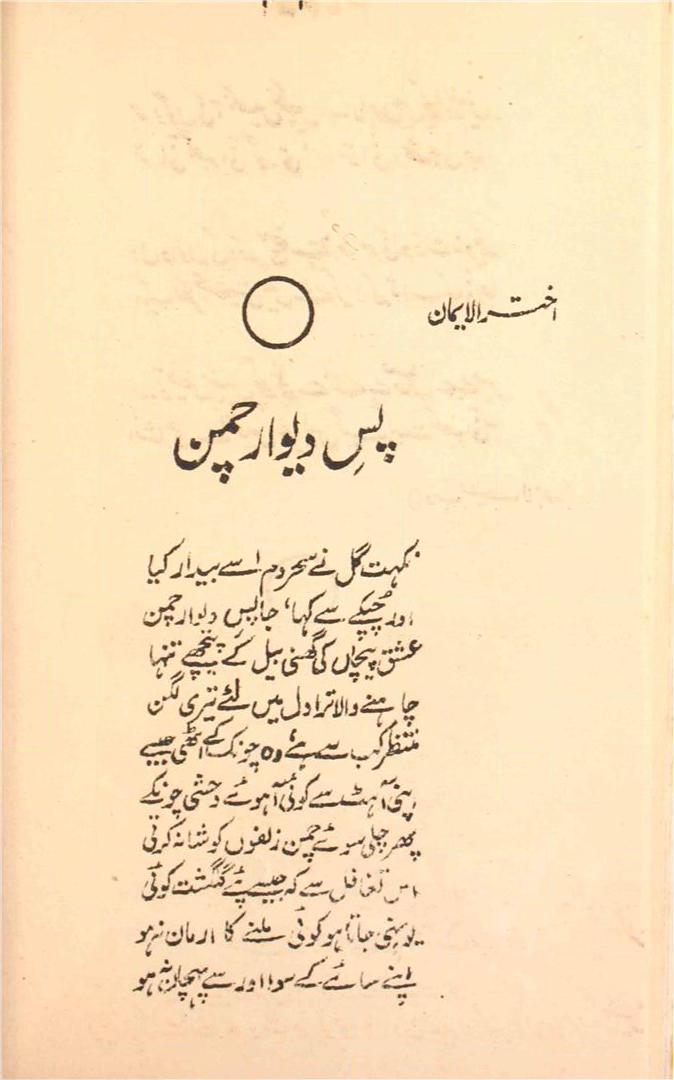 اختر الایمان
پسِ دیوارِ چمن
نکہت گل نے سحر دم اسے بیدار کیا
اور چُپکے سے کہا، جا پسِ دیوارِ چمن
عشق پیچاں کی گھنی بیل کے پیچھے تنہا
چاہنے والا ترا دل میں لئے تیری لگن
منتظر کب سے ہے، وہ چونک کے اٹھی جیسے
اپنی آہٹ سے کوئی آہوئے وحشی چونکے
پھر چلی سوئے چمن زلفوں کو شانہ کرتی
اس تغافل سے کہ جیسے پئے گلگشت کوئی
یونہی جاتا ہو کوئی ملنے کا ارمان نہ ہو
اپنے سائے کے سوا اور سے پہچان نہ ہو